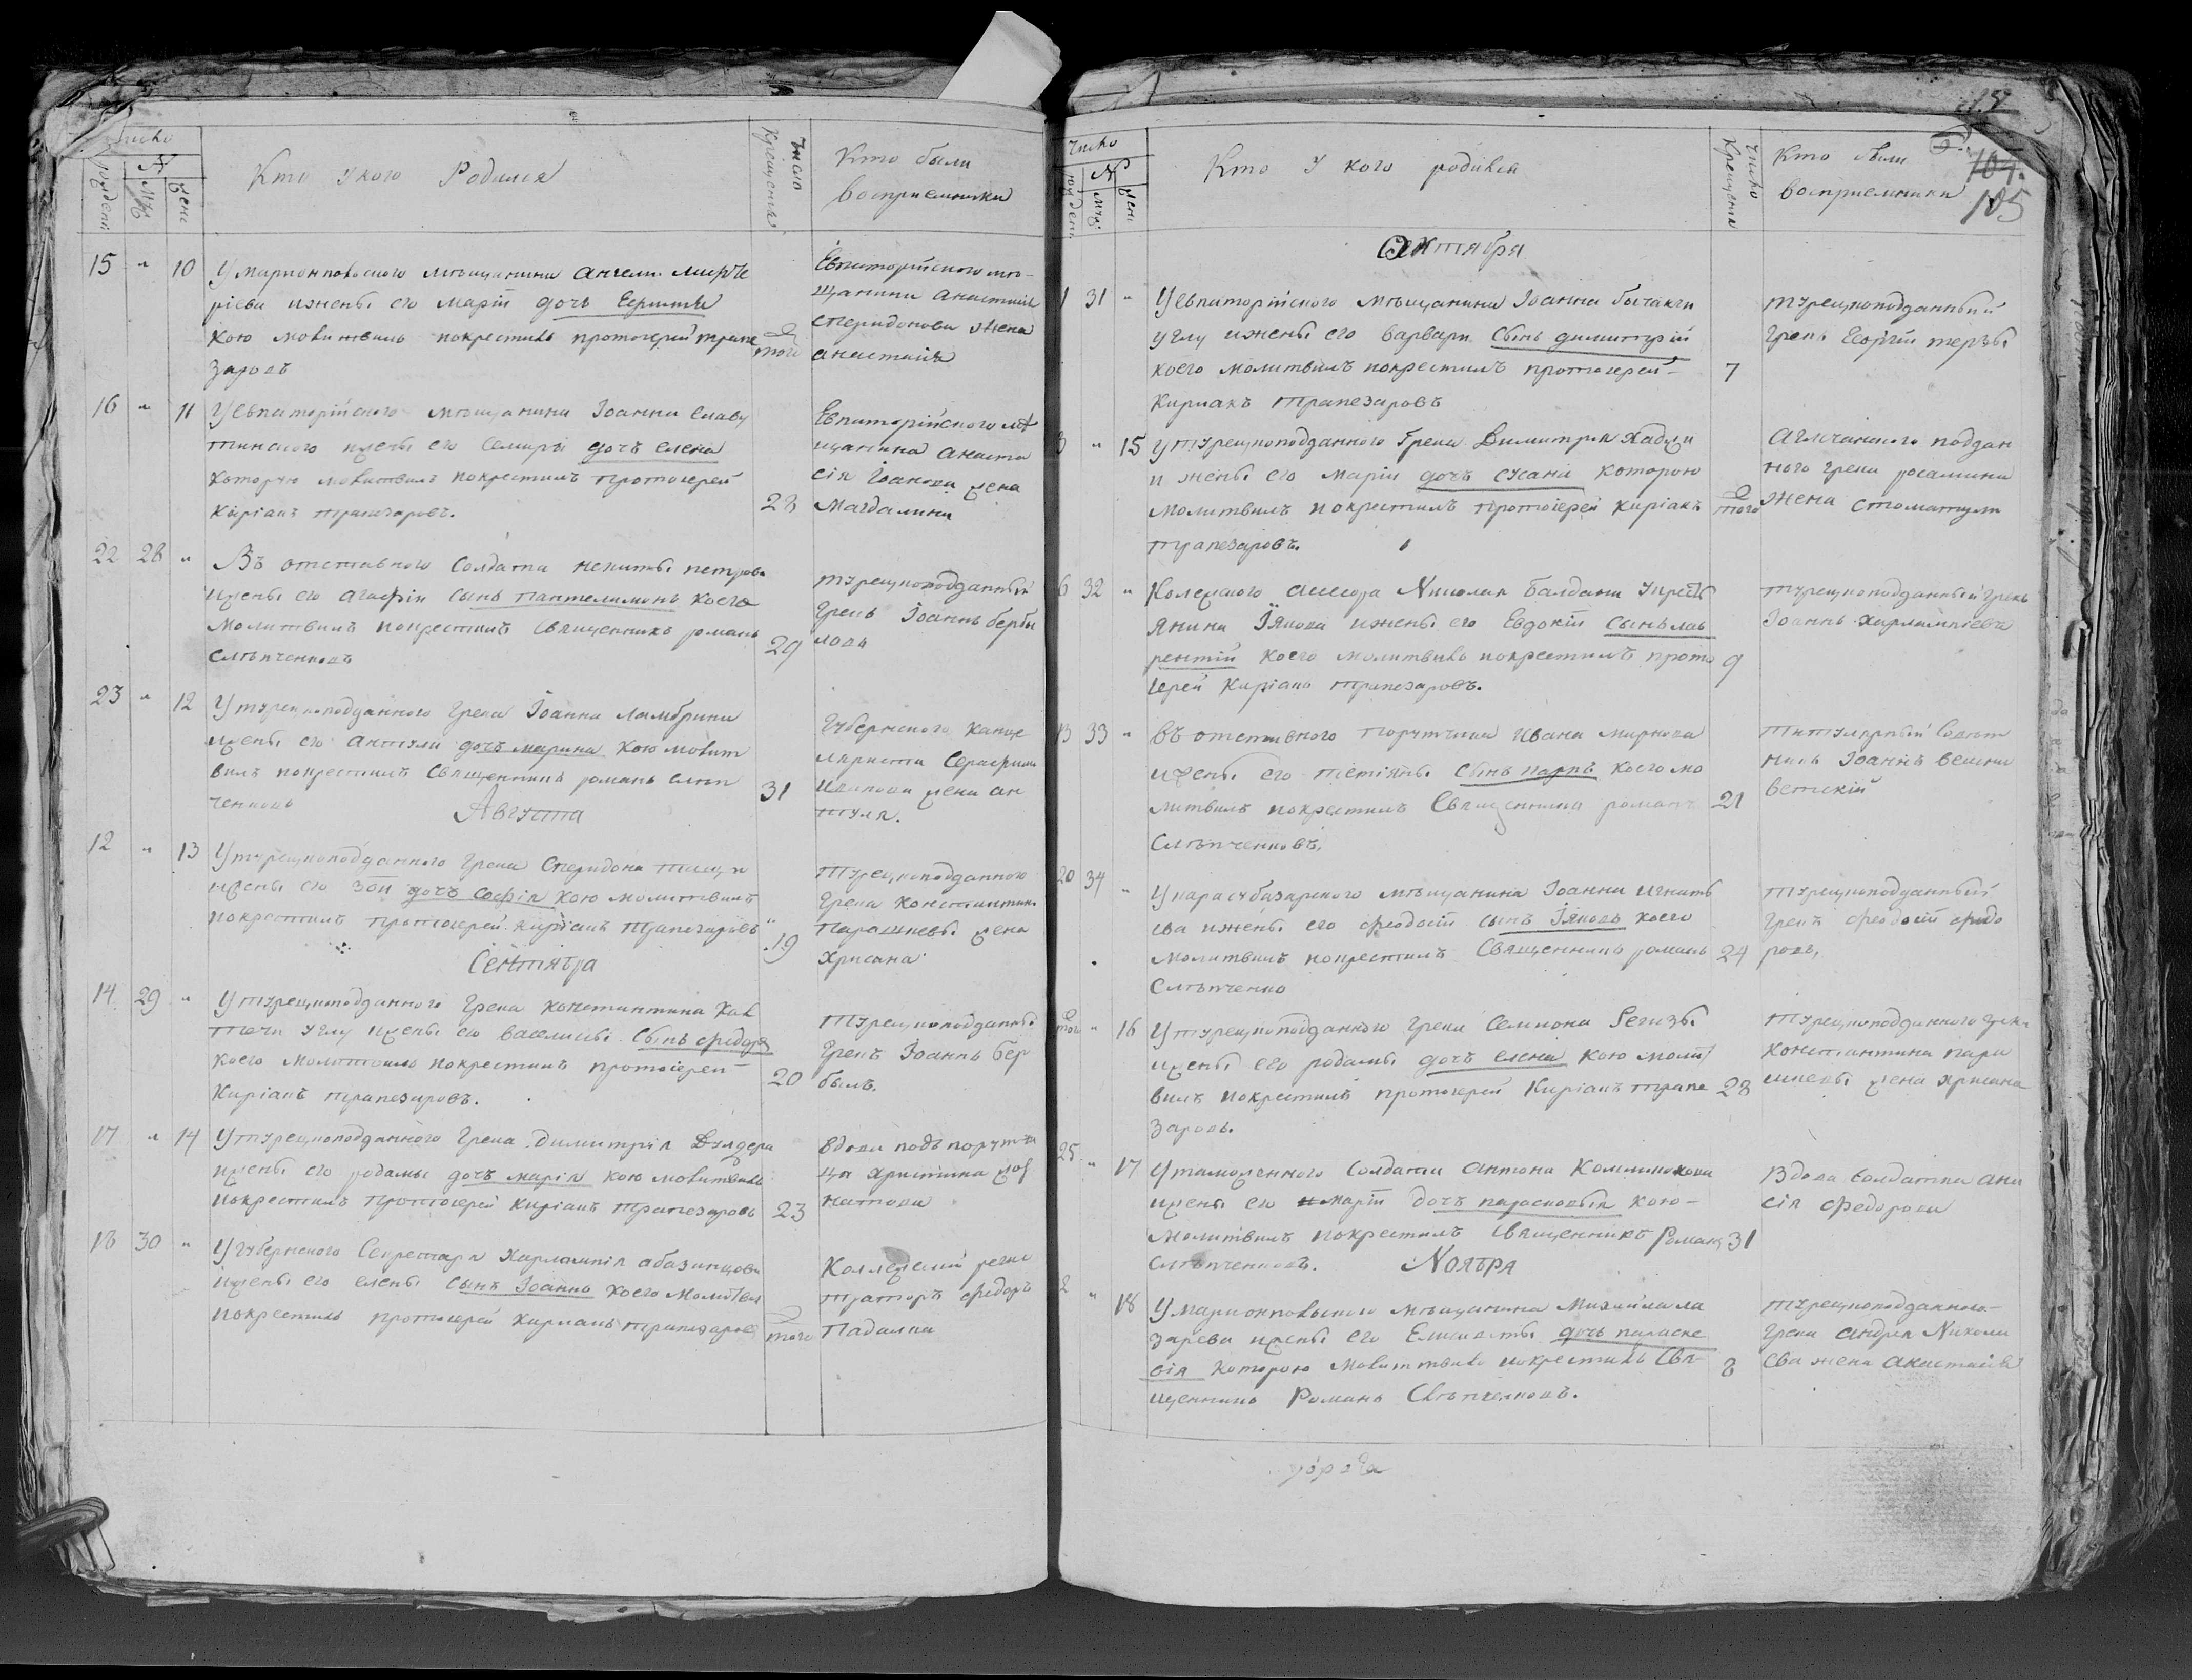 число
рождені
№
мꙋ
жені
Кто у кого Родился
число
Крещения
Кто были
восприемники
15 " 10 У мариопольского мѣщанина Ангели
ріева и жены его Маріи дочь
кою молитвилъ покрестилъ протоіерей трапе
заровъ
того
Евпаторійского мѣ-
щанина Анастасія
Спиридонова жена
анастасія
16 " 11 У Евпаторійского мѣщанина Іоанна славу
тинского и жены его дочь елена
которую молитвилъ покрестилъ протоіерей
Киріакъ трапезаровъ.
28
Евпаторійского мѣ
щанина анаста
сія Іоанова жена
Магдалина
22 28 " Въ отставного Солдата никиты петрова
и жены его агафіи сынъ пантелимонъ коего
молитвилъ покрестилъ Священникъ романъ
слѣпченковъ
29
турецкоподданный
грекъ Іоаннъ
23 " 12 У турецкоподданного грека Іоанна Ламбрина
и жены его антули дочь марина кою молит
вилъ покрестилъ Священникъ романъ слѣп
ченковъ
31
Губернского канце
ляриста Серафима
жена ан
туля.
Августа
12 " 13 У турецкоподданного грека Спиридона
и жены его Зои дочь софія кою молитвилъ
покрестилъ протоіерей Киріакъ трапезаровъ
19
турецкоподданного
грека константина
Парашкевы жена
Хрисана
Сентября
14 29 " У турецкоподданного грека константина Кав
тачи углу и жены его василисы сынъ федоръ
коего молитвилъ покрестилъ протоіерей
Киріакъ трапезаровъ.
20
турецкоподданный
грекъ Іоаннъ бер
былъ.
17 " 14 У турецкоподданного грека димитрія
и жены его родамы дочь марія кою молитвилъ
покрестилъ протоіерей Киріакъ трапезаровъ
23
вдова подъпорутчи
ца Христина
натова
18 30 " У губернского Секретаря Харлампія абазинцова
и жены его елены сынъ Іоаннъ коего молитвил
покрестилъ протоіерей Кириакъ трапезаров
того
Коллежский реги
траторъ федоръ
Падалка
число
№
Кто у кого родился
число
Крещения
Кто были
восприемники
104.
105
Октября
1 31 " У евпаторійского мѣщанина Іоанна бычакчи
углу и жены его варвары сынъ димитрій
коего молитвилъ покрестилъ протоіерей-
Кириакъ трапезаровъ
7
турецкоподданный
грекъ Георгій терзы
3 " 15 У турецкоподданного грека Димитрія Хаджи
и жены его маріи дочь сусана которою
молитвилъ покрестилъ протоіерей киріакъ
трапезаровъ.
того
Агличанского поддан
ного грека
жена стоматула
6 32 " Колежского Асесора Николая балдани у крестъ
янина Іякова и жены его Евдокіи сынъ лав
рентій коего молитвилъ покрестилъ прото
іерей Киріакъ трапезаровъ.
9
турецкоподданный грекъ
Іоаннъ Харлампіевъ
13 33 " въ отставного порутчика Ивана Маркова
и жены его сынъ коего мо
литвилъ покрестилъ Священникъ романъ
Слѣпченковъ.
21
Титулярный Совѣт
никъ Іоаннъ
20 34 " У карасубазарского мѣщанина Іоанна игнать
ева и жены его феодосіи сынъ Іяковъ коего
молитвилъ покрестилъ Священникъ романъ
Слѣпченко
24
турецкоподданный
грекъ феодосій федо
ровъ,
того " 16 У турецкоподданного грека Семиона
и жены его родамы дочь елена кою молит
вилъ покрестилъ протоіерей Киріакъ трапе
заровъ.
28
турецкоподданного грека
константина пара
шкевы жена хрисана
25 " 17 У таможенного солдата антона
и жены его маріи дочь парасковія кою-
молитвилъ покрестилъ Священникъ Романъ
слѣпченковъ.
31
Вдова солдатка ани
сія федорова
Ноября
2 " 18 У мариопольского мѣщанина Михаила ла
зарева и жены его Елисаветы дочь параске
вія которою молитвилъ покрестилъ Свя-
щенникъ Романъ Слѣпченковъ.
8
турецкоподданного
грека андрея Никола
ева жена анастасія